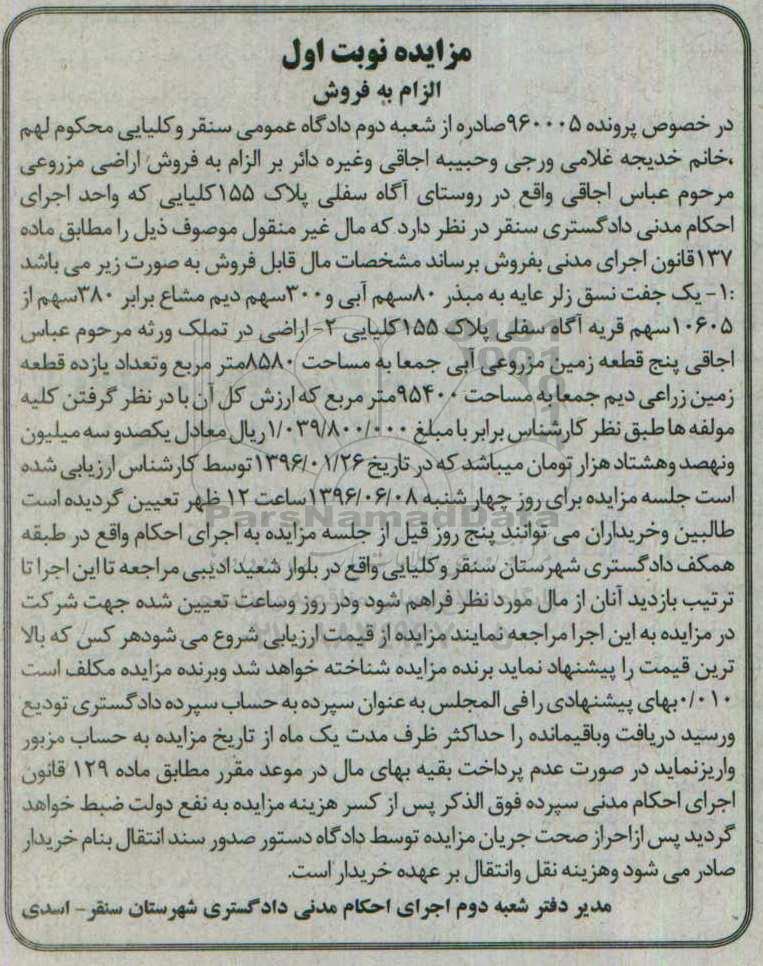 مزایده نوبت اول
الزام به فروش
در خصوص پرونده ۹۶۰۰۰۵صادره از شعبه دوم دادگاه عمومی سنقر وکلیایی محکوم لهم
،خانم خدیجه غلامی ورجی وحبیبه اجاقی وغیره دائر بر الزام به فروش اراضی مزروعی
مرحوم عباس اجاقی واقع در روستای آگاه سفلی پلاک ۱۵۵کلیایی که واحد اجرای
احکام مدنی دادگستری سنقر در نظر دارد که مال غیر منقول موصوف ذیل را مطابق ماده
۱۳۷قانون اجرای مدنی بفروش برساند مشخصات مال قابل فروش به صورت زیر می باشد
:۱- یک جفت نسق زلر عایه به مبذر ۸۰سهم آبی و۳۰۰سهم دیم مشاع برابر ۳۸۰سهم از
۱۰۶۰۵سهم قریه آگاه سفلی پلاک ۱۵۵کلیایی ۲- اراضی در تملک ورثه مرحوم عباس
اجاقی پنج قطعه زمین مزروعی آبی جمعا به مساحت ۸۵۸۰متر مربع وتعداد یازده قطعه
زمین زراعی دیم جمعا به مساحت ۹۵۴۰۰متر مربع که ارزش کل آن با در نظر گرفتن کلیه
مولفه ها طبق نظر کارشناس برابر با مبلغ ۱/۰۳۹/۸۰۰/۰۰۰ریال معادل یکصدو سه میلیون
ونهصد وهشتاد هزار تومان میباشد که در تاریخ ۱۳۹۶/۰۱/۲۶توسط کارشناس ارزیابی شده
است جلسه مزایده برای روز چهار شنبه ۱۳۹۶/۰۶/۰۸ساعت ۱۲ ظهر تعیین گردیده است
طالبین وخریداران می توانند پنج روز قبل از جلسه مزایده به اجرای احکام واقع در طبقه
همکف دادگستری شهرستان سنقر وکلیایی واقع در بلوار شعید ادیبی مراجعه تا این اجرا تا
ترتیب بازدید آنان از مال مورد نظر فراهم شود ودر روز وساعت تعیین شده جهت شرکت
در مزایده به این اجرا مراجعه نمایند مزایده از قیمت ارزیابی شروع می شودهر کس که بالا
ترین قیمت را پیشنهاد نماید برنده مزایده شناخته خواهد شد وبرنده مزایده مکلف است
۰/۰۱۰بهای پیشنهادی را فی المجلس به عنوان سپرده به حساب سپرده دادگستری تودیع
ورسید دریافت وباقیمانده را حداکثر ظرف مدت یک ماه از تاریخ مزایده به حساب مزبور
واریزنماید در صورت عدم پرداخت بقیه بهای مال در موعد مقرر مطابق ماده ۱۲۹ قانون
اجرای احکام مدنی سپرده فوق الذکر پس از کسر هزینه مزایده به نفع دولت ضبط خواهد
گردید پس ازاحراز صحت جریان مزایده توسط دادگاه دستور صدور سند انتقال بنام خریدار
صادر می شود وهزینه نقل وانتقال بر عهده خریدار است.
مدیر دفتر شعبه دوم اجرای احکام مدنی دادگستری شهرستان سنقر- اسدی
ParsNamadData